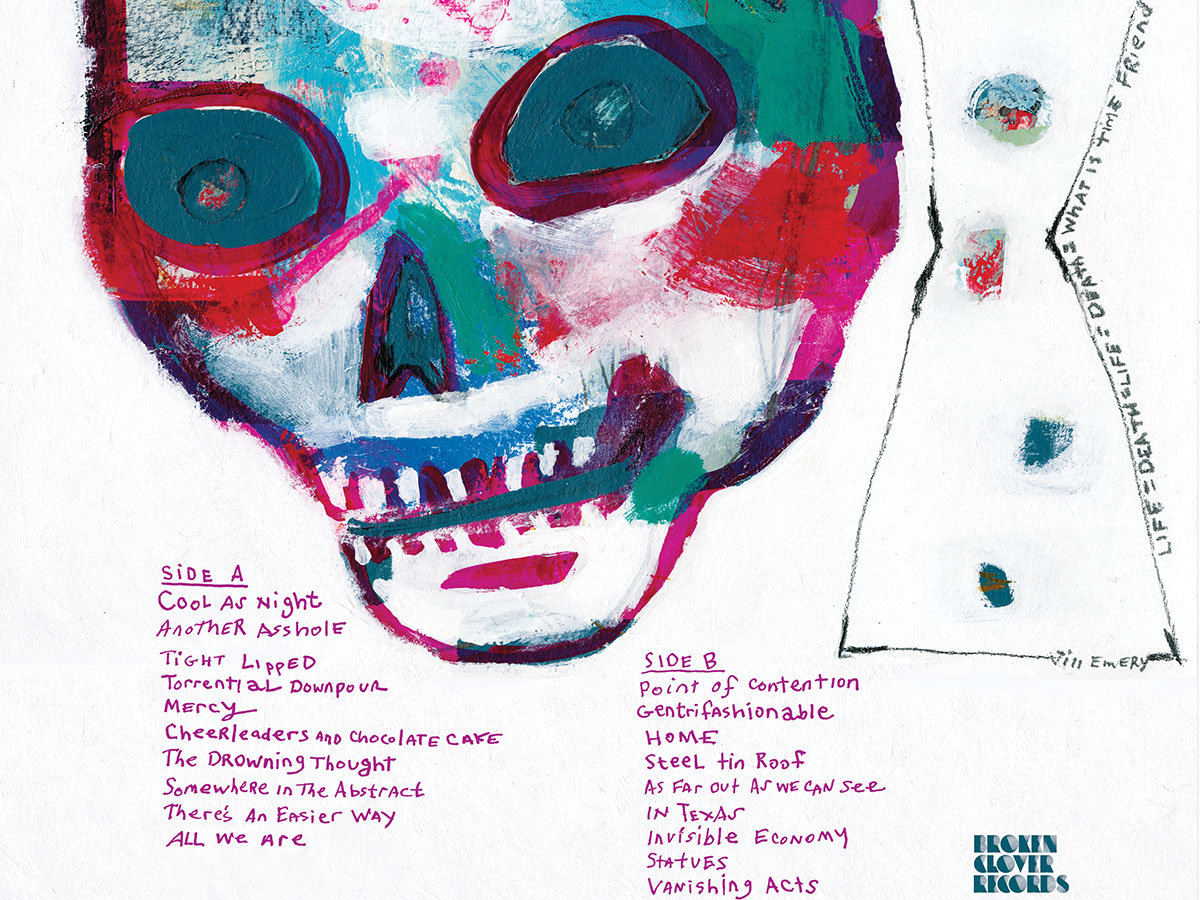 LIFE = DEATH = LIFE = DEATH = WHAT IS TIME FRIEND
Jill Emery
SiDE A
Cool As Night
Another Asshole
Tight Lipped
Torrential Downpour
Mercy
Cheerleaders and Chocolate Cake
The Drowning Thought
Somewhere In The Abstract
There's An Easier Way
All We Are
SIDE B
Point of Contention
Gentrifashionable
HOME
Steel tin Roof
As Far Out As We Can See
IN TEXAS
Invisible Economy
Statues
Vanishing Acts
BROKEN
CLOVER
RECORDS